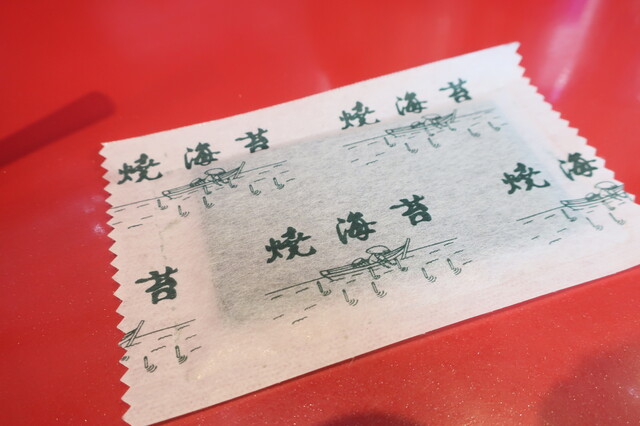 焼海苔
焼海苔
焼海苔
焼海
苔